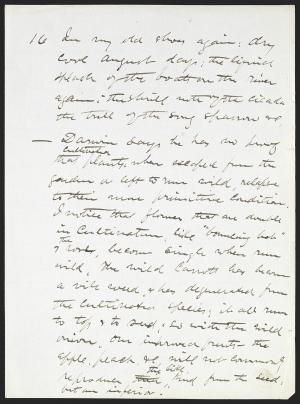 16 In my old shoes again: dry
cool August days; the liquid
splash of the oars on the river
again; the shrill note of the cicada
the trill of the song sparrow &c
— Darwin says he has no proof
cultivated
that plants, when escaped from the
garden & left to run wild, relapse
to their more primitive condition.
I notice that flowers that are double
in cultivation, like "bouncing bet"
the
& rose, become single when run
wild, the wild carrot has become
a vile weed, & has degenerated from
the cultivated species; it all runs
to top & to seed; so with the wild
onion. Our improved fruits — the
apple, peach &c, will not commonly
the like
reproduce kind from the seed,
but an inferior.